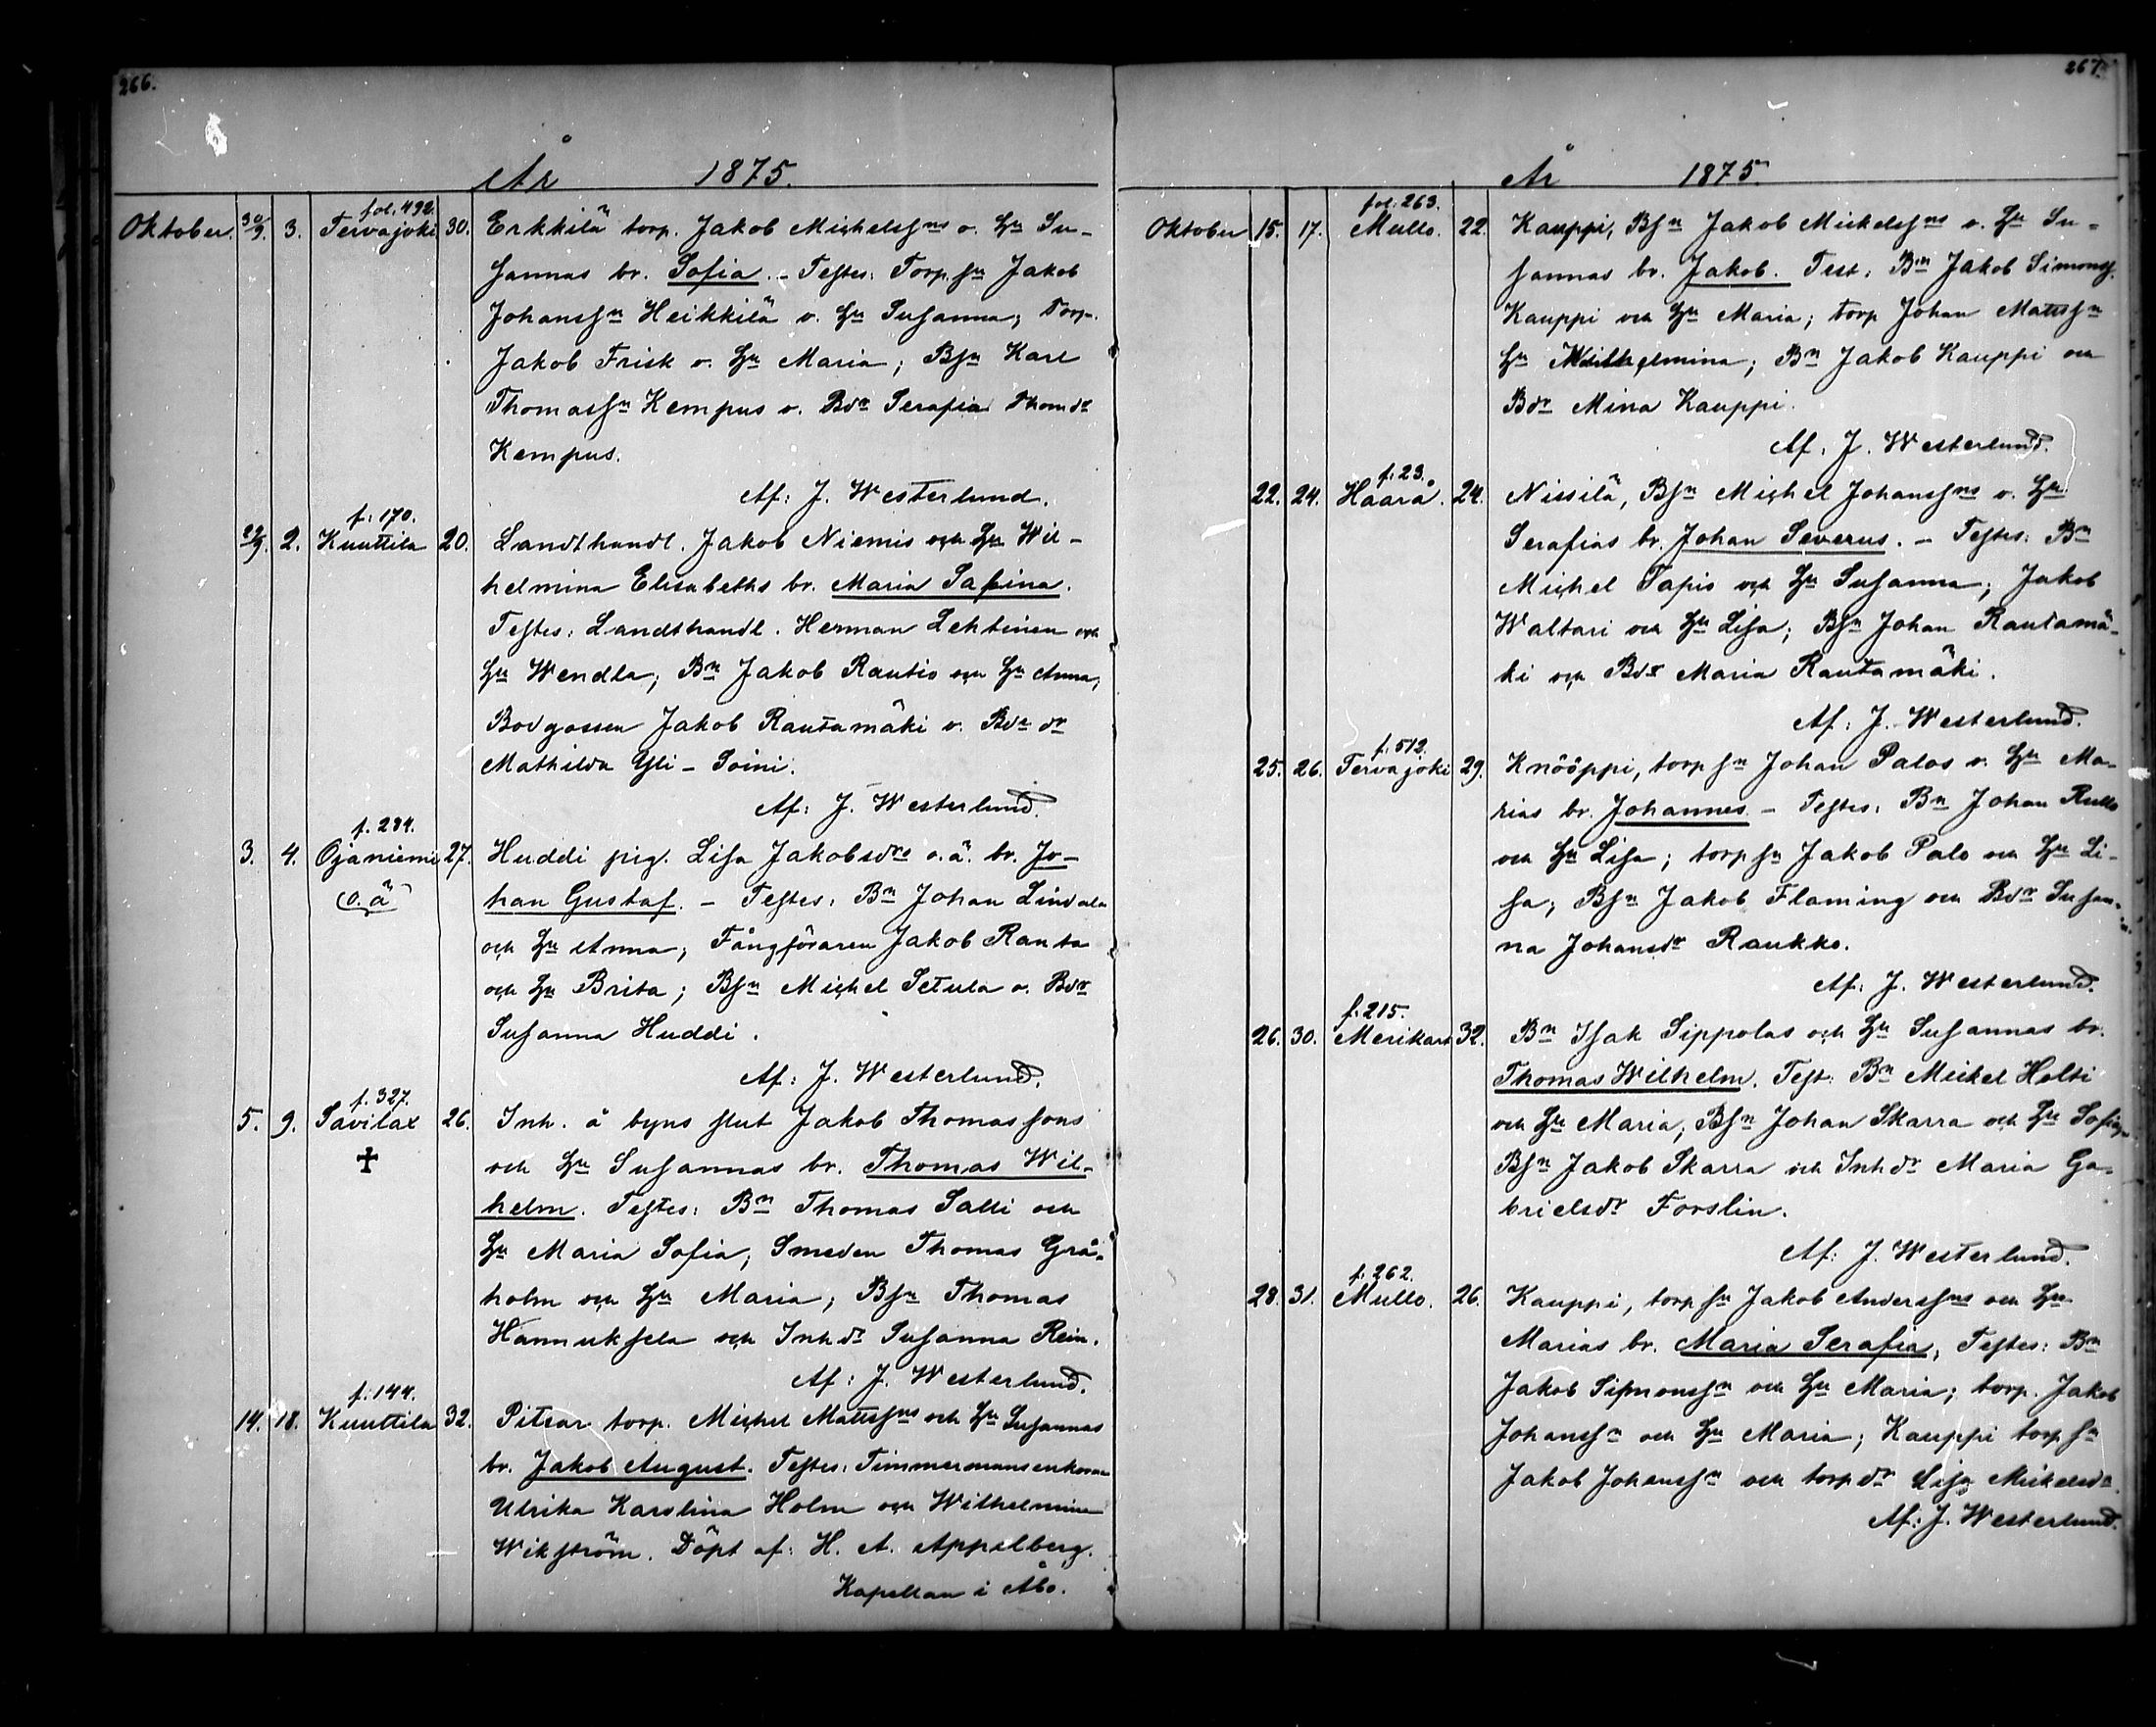 266.
År 1875.
fol. 492.
Oktober. 30/9. 3. Tervajoki 30. Erkkilä torp. Jakob Michelssns o. Hu Su-
sannas br. Sofia. - Testes: Torp.sn Jakob
Johanssn Heikkilä o. Hu Susanna; Torp.
Jakob Frisk o. Hu Maria; Bsn Karl
Thomassn Kempus o. Bdr Serafia Thomdr
Kempus.
Af: J. Westerlund.
f. 170.
/9. 2. Kuuttila 20. Landthandl. Jakob Niemis och Hu Wil-
helmina Elisabeths br. Maria Safina.
Testes: Landthandl. Herman Lehtinen och
Hu Wendla; Bn Jakob Rautio och Hu Anna;
Bodgossen Jakob Rautamäki o. Bdr
Mathilda Yli-Soini.
Af: J. Westerlund.
f. 284.
3. 4. Ojaniemi 27. Huddi pig. Lisa Jakobsdrs o.ä. br. Jo-
(o.ä) han Gustaf. - Testes: Bn Johan Lindala
och Hu Anna; Fångföraren Jakob Ranta
och Hu Brita; Bsn Michel Setula o. Bdr
Susanna Huddi.
Af: J. Westerlund.
f. 327.
5. 9. Savilax 26. Inh. å byns slut Jakob Thomassons
och Hu Susannas br. Thomas Wil-
helm. Testes: Bn Thomas Salli och
Hu Maria Sofia; Smeden Thomas Grå-
holm och Hu Maria; Bsn Thomas
Hannuksela och Inhdr Susanna Rein.
Af: J. Westerlund.
f. 144.
14. 18. Kuuttila 32. Pitcar torp. Michel Mattssns och Hu Susannas
br. Jakob August. Testes: Timmermansenkorna
Ulrika Karolina Holm och Wilhelmina
Wikström. Döpt af: H. A. Appelberg.
Kapellan i Åbo.
267.
År 1875.
fol. 263.
Oktober 15. 17. Mullo. 22. Kauppi, Bsn Jakob Mickelssns o. Hu Su-
sannas br. Jakob. Test: Bn Jakob Simonss.
Kauppi och Hu Maria; torp Johan Mattssn
Hu Wilhelmina; Bn Jakob Kauppi och
Bdr Mina Kauppi.
Af. J. Westerlund.
f. 23.
22. 24. Haarå. 24. Nissilä, Bsn Michel Johanssns o. Hu
Serafias br. Johan Severus. - Testes: Bn
Michel Tapio och Hu Susanna; Jakob
Waltari och Hu Lisa; Bsn Johan Rautamä-
ki och Bdr Maria Rautamäki.
Af: J. Westerlund.
f. 512.
25. 26. Tervajoki 29. Knööppi, torpsn Johan Palos o. Hu Ma-
rias br. Johannes - Testes: Bn Johan Rullo
och Hu Lisa; torpsn Jakob Palo och Hu Li-
sa; Bsn Jakob Flaming och Bdr Susan-
na Johansdr Raukko.
Af: J. Westerlund.
f. 215.
26. 30. Merikart 32. Bn Isak Sippolas och Hu Susannas br.
Thomas Wilhelm. Test: Bn Mickel Holti
och Hu Maria; Bsn Johan Skarra och Hu Sofia;
Bsn Jakob Skarra och Inhdr Maria Ga-
brielsdr Forslin.
Af: J. Westerlund.
f. 262.
28. 31. Mullo. 26. Kauppi, torpsn Jakob Anderssns och Hu
Marias br. Maria Serafia, Testes: Bn
Jakob Simonssn och Hu Maria; torp. Jakob
Johanssn och Hu Maria; Kauppi torpsn
Jakob Johanssn och torpdr Lisa Mickelsdr.
Af: J. Westerlund.